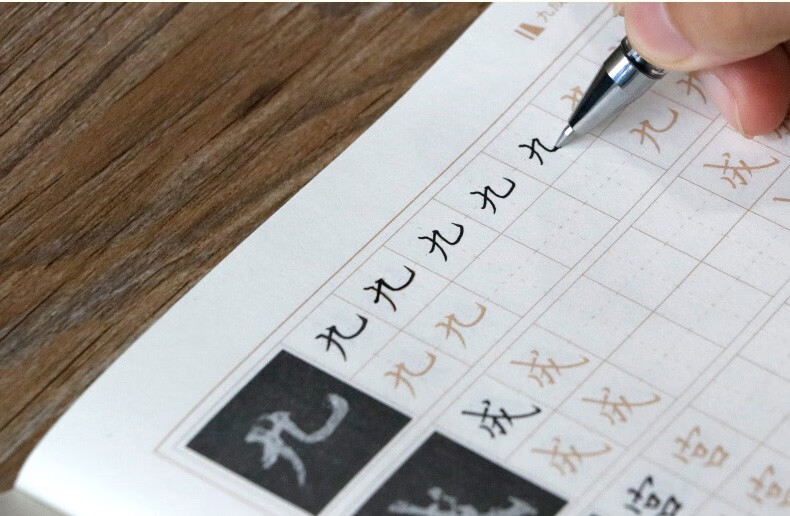 九
九 九 九 九 九 九
九 九 九
成 成 成
成 成
宫 宫
宫